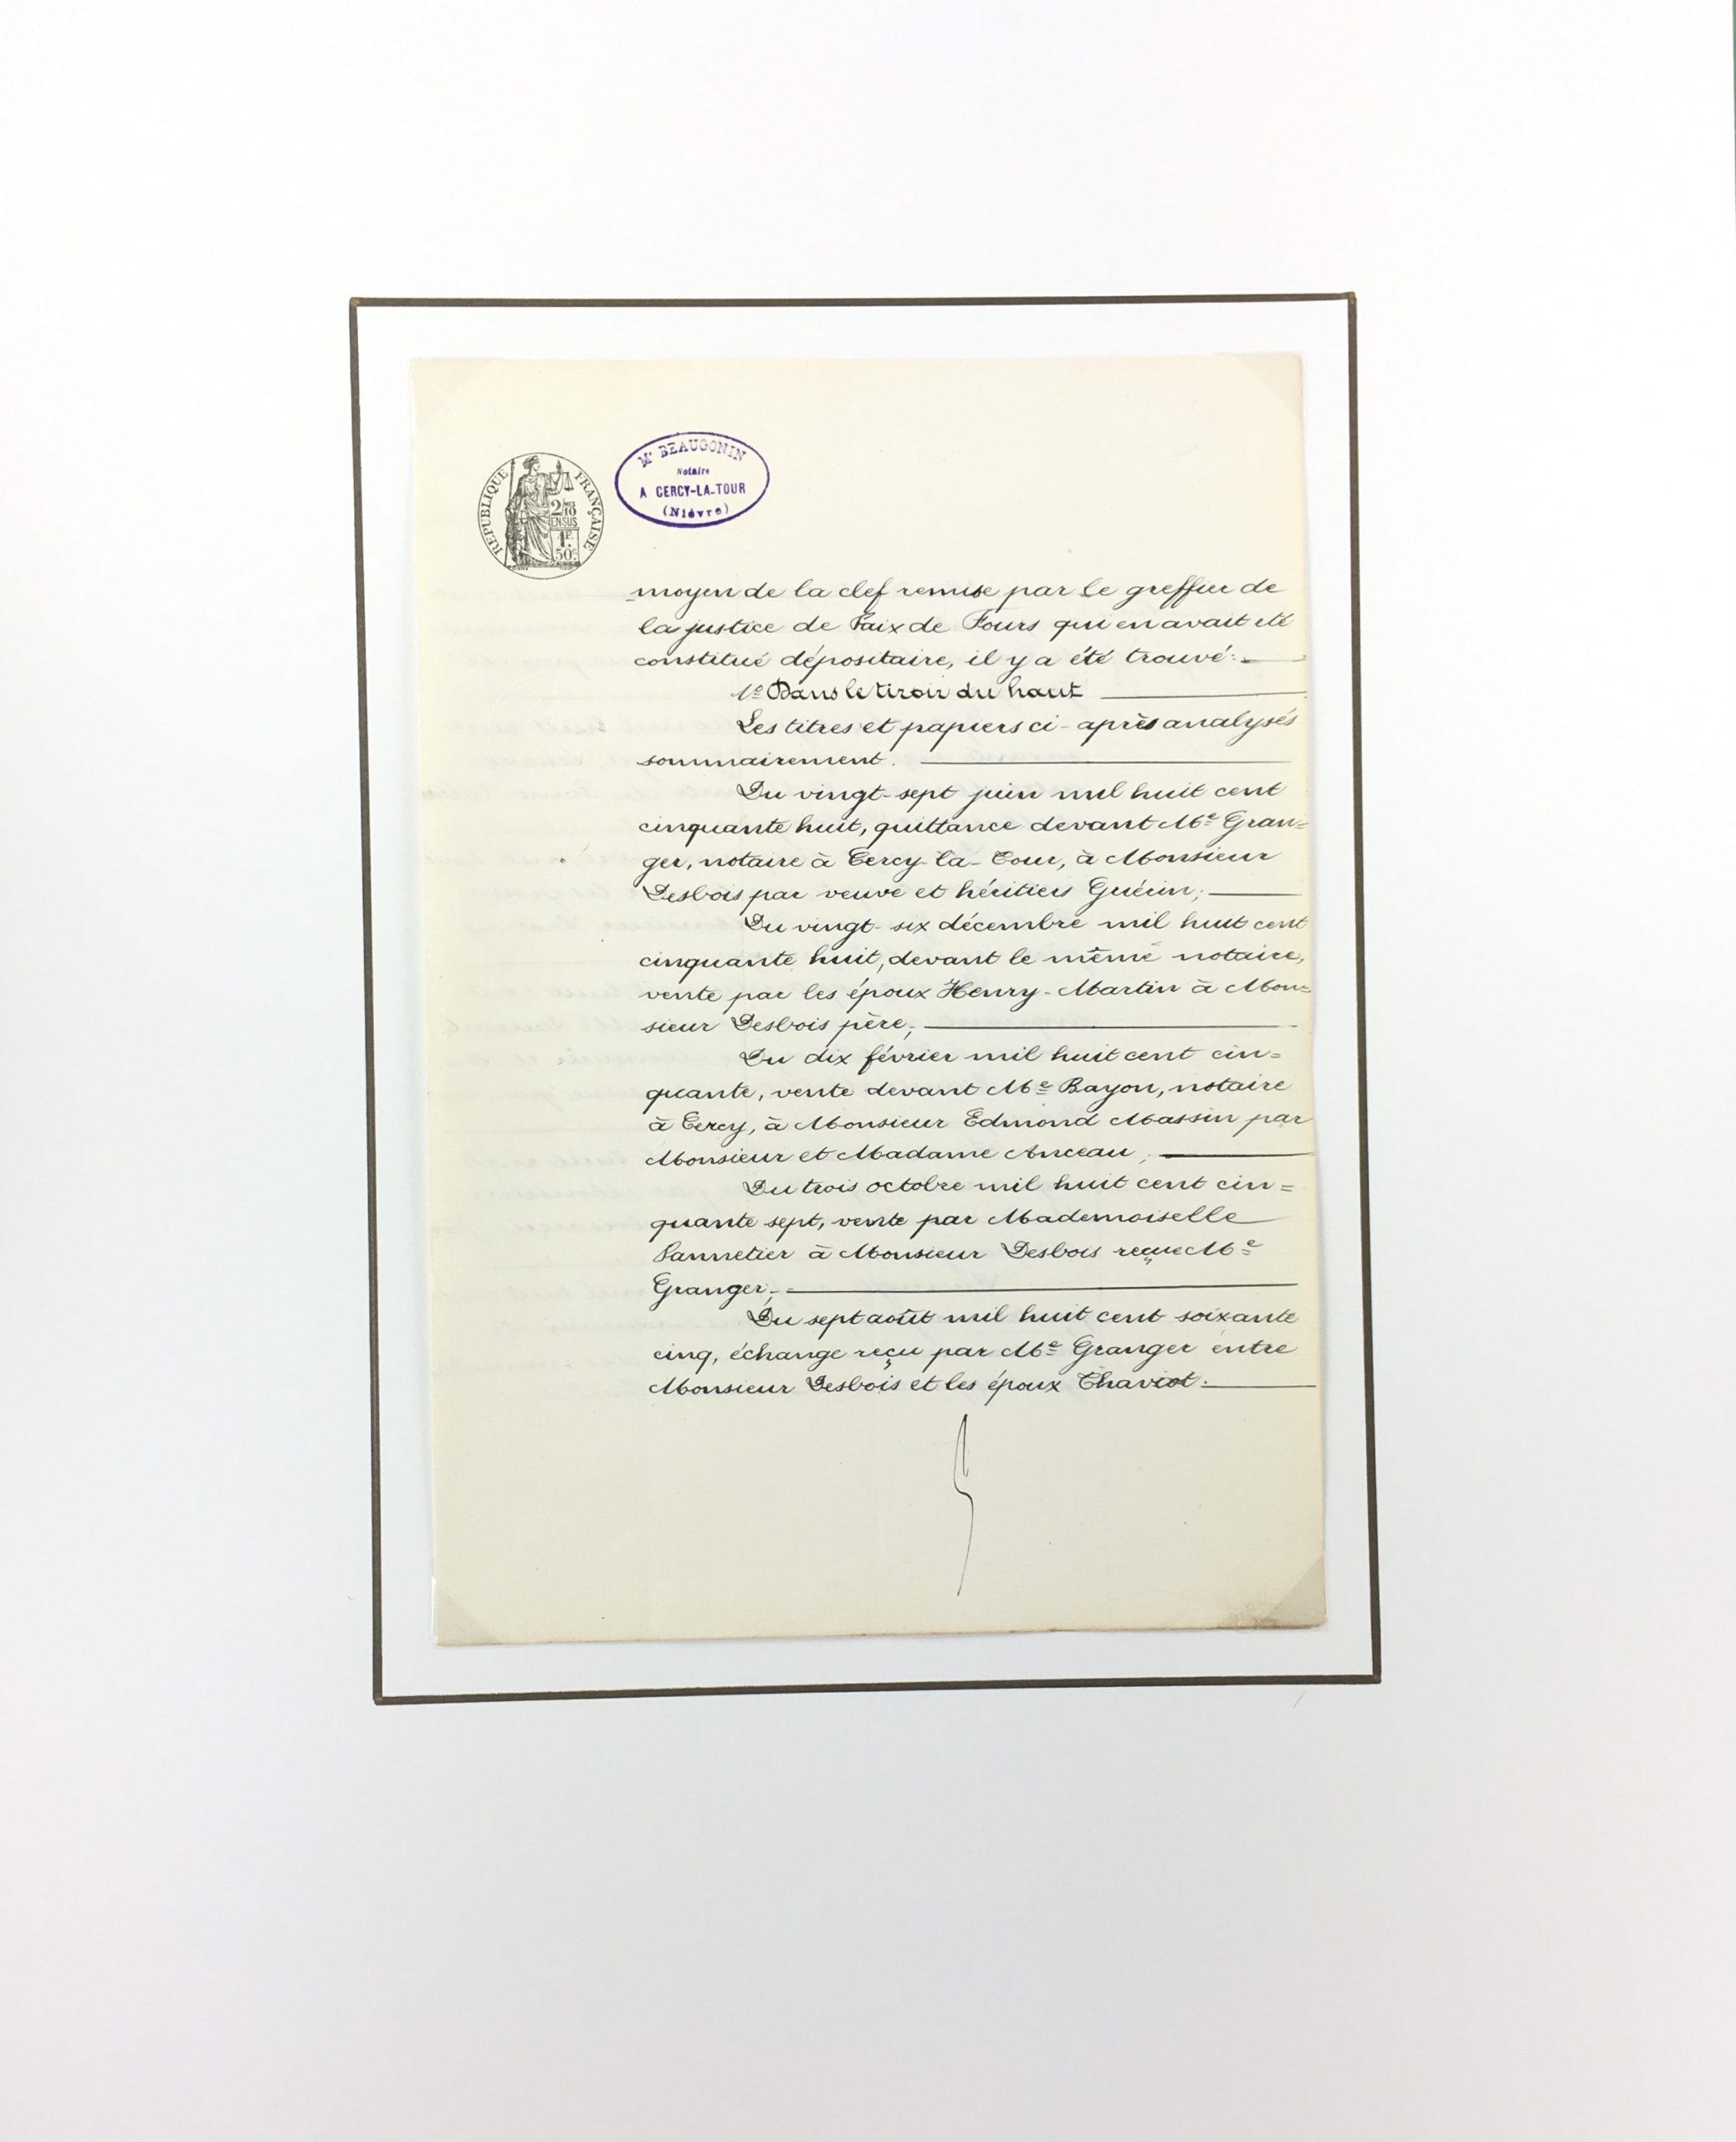 RÉPUBLIQUE FRANÇAISE
2/10
EN SUS
1F.
50c.
Me BEAUGONIN
Notaire
A CERCY-LA-TOUR
(Nièvre)
moyen de la clef remise par le greffier de
la justice de Paix de Fours qui en avait été
constitué dépositaire, il y a été trouvé:
1º Dans le tiroir du haut
Les titres et papiers ci-après analysés
sommairement.
Du vingt-sept juin mil huit cent
cinquante huit, quittance devant Me Gran=
ger, notaire à Cercy-la-Tour, à Monsieur
Desbois par veuve et héritiers Guérin;
Du vingt-six décembre mil huit cent
cinquante huit, devant le même notaire,
vente par les époux Henry-Martin à Mon=
sieur Desbois père;
Du dix février mil huit cent cin=
quante, vente devant Me Bayon, notaire
à Cercy, à Monsieur Edmond Massin par
Monsieur et Madame Anceau;
Du trois octobre mil huit cent cin=
quante sept, vente par Mademoiselle
Pannetier à Monsieur Desbois reçue Me
Granger;
Du sept août mil huit cent soixante
cinq, échange reçu par Me Granger entre
Monsieur Desbois et les époux Thaviot.